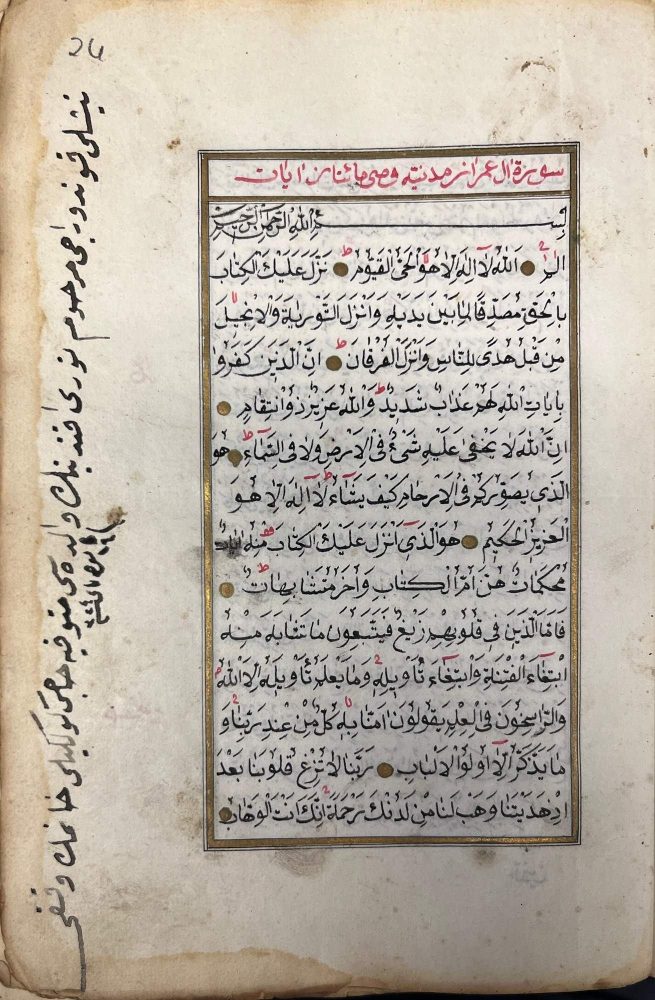 24
سورة ال عمران مدنية وهى مائتان ايات
بسم الله الرحمن الرحيم
الم الله لا اله الا هو الحى القيوم نزل عليك الكتاب
بالحق مصدقا لما بين يديه وانزل التورية والانجيل
من قبل هدى للناس وانزل الفرقان ان الذين كفروا
بايات الله لهم عذاب شديد والله عزيز ذو انتقام
ان الله لا يخفى عليه شىء فى الارض ولا فى السماء هو
الذى يصوركم فى الارحام كيف يشاء لا اله الا هو
العزيز الحكيم هو الذى انزل عليك الكتاب منه ايات
محكمات هن ام الكتاب واخر متشابهات
فاما الذين فى قلوبهم زيغ فيتبعون ما تشابه منه
ابتغاء الفتنة وابتغاء تأويله وما يعلم تأويله الا الله
والراسخون فى العلم يقولون امنا به كل من عند ربنا و
ما يذكر الا اولوا الالباب ربنا لا تزغ قلوبنا بعد
اذ هديتنا وهب لنا من لدنك رحمة انك انت الوهاب
نيشلى قوندوراجى مرحوم نورى افندينك والده سى متوفيه حاجى كوكبلى خانمك وقفى